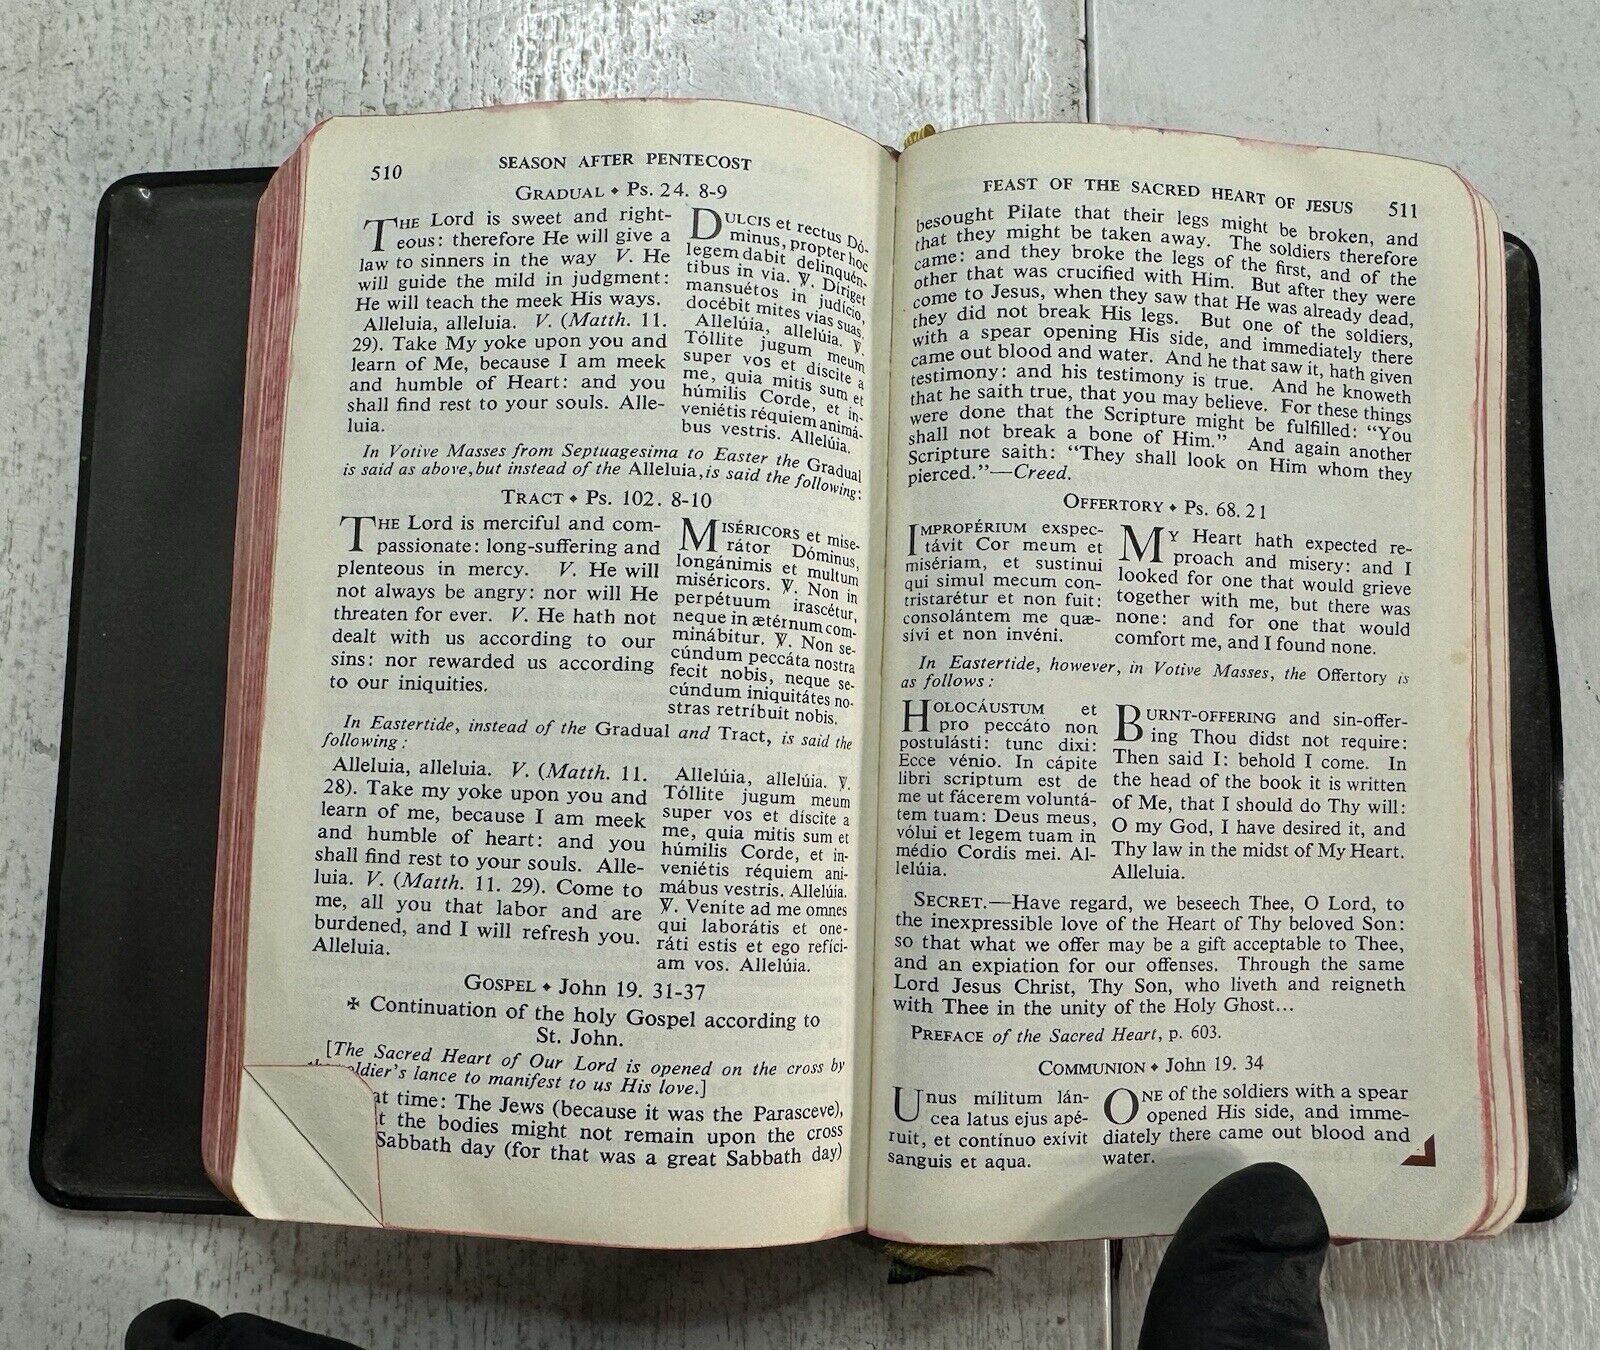 510
SEASON AFTER PENTECOST
GRADUAL ♦ Ps. 24. 8-9
THE Lord is sweet and right-
eous: therefore He will give a
law to sinners in the way V. He
will guide the mild in judgment:
He will teach the meek His ways.
Alleluia, alleluia. V. (Matth. 11.
29). Take My yoke upon you and
learn of Me, because I am meek
and humble of Heart: and you
shall find rest to your souls. Alle-
luia.
DULCIS et rectus Dó-
minus, propter hoc
legem dabit delinquén-
tibus in via. ℣. Díriget
mansuétos in judício,
docébit mites vias suas.
Allelúia, allelúia. ℣.
Tóllite jugum meum
super vos et díscite a
me, quia mitis sum et
húmilis Corde, et in-
veniétis réquiem animá-
bus vestris. Allelúia.
In Votive Masses from Septuagesima to Easter the Gradual
is said as above, but instead of the Alleluia, is said the following:
TRACT ♦ Ps. 102. 8-10
THE Lord is merciful and com-
passionate: long-suffering and
plenteous in mercy. V. He will
not always be angry: nor will He
threaten for ever. V. He hath not
dealt with us according to our
sins: nor rewarded us according
to our iniquities.
MISÉRICORS et mise-
rátor Dóminus,
longánimis et multum
miséricors. ℣. Non in
perpétuum irascétur,
neque in ætérnum com-
minábitur. ℣. Non se-
cúndum peccáta nostra
fecit nobis, neque se-
cúndum iniquitátes no-
stras retríbuit nobis.
In Eastertide, instead of the Gradual and Tract, is said the
following:
Alleluia, alleluia. V. (Matth. 11.
28). Take my yoke upon you and
learn of me, because I am meek
and humble of heart: and you
shall find rest to your souls. Alle-
luia. V. (Matth. 11. 29). Come to
me, all you that labor and are
burdened, and I will refresh you.
Alleluia.
Allelúia, allelúia. ℣.
Tóllite jugum meum
super vos et díscite a
me, quia mitis sum et
húmilis Corde, et in-
veniétis réquiem ani-
mábus vestris. Allelúia.
℣. Veníte ad me omnes
qui laborátis et one-
ráti estis et ego refíci-
am vos. Allelúia.
GOSPEL ♦ John 19. 31-37
✠ Continuation of the holy Gospel according to
St. John.
[The Sacred Heart of Our Lord is opened on the cross by
soldier's lance to manifest to us His love.]
at time: The Jews (because it was the Parasceve),
t the bodies might not remain upon the cross
Sabbath day (for that was a great Sabbath day)
FEAST OF THE SACRED HEART OF JESUS
511
besought Pilate that their legs might be broken, and
that they might be taken away. The soldiers therefore
came: and they broke the legs of the first, and of the
other that was crucified with Him. But after they were
come to Jesus, when they saw that He was already dead,
they did not break His legs. But one of the soldiers,
with a spear opening His side, and immediately there
came out blood and water. And he that saw it, hath given
testimony: and his testimony is true. And he knoweth
that he saith true, that you may believe. For these things
were done that the Scripture might be fulfilled: "You
shall not break a bone of Him." And again another
Scripture saith: "They shall look on Him whom they
pierced."—Creed.
OFFERTORY ♦ Ps. 68. 21
IMPROPÉRIUM exspec-
távit Cor meum et
misériam, et sustínui
qui simul mecum con-
tristarétur et non fuit:
consolántem me quæ-
sívi et non invéni.
MY Heart hath expected re-
proach and misery: and I
looked for one that would grieve
together with me, but there was
none: and for one that would
comfort me, and I found none.
In Eastertide, however, in Votive Masses, the Offertory is
as follows:
HOLOCÁUSTUM et
pro peccáto non
postulásti: tunc dixi:
Ecce vénio. In cápite
libri scriptum est de
me ut fácerem voluntá-
tem tuam: Deus meus,
vólui et legem tuam in
médio Cordis mei. Al-
lelúia.
BURNT-OFFERING and sin-offer-
ing Thou didst not require:
Then said I: behold I come. In
the head of the book it is written
of Me, that I should do Thy will:
O my God, I have desired it, and
Thy law in the midst of My Heart.
Alleluia.
SECRET.—Have regard, we beseech Thee, O Lord, to
the inexpressible love of the Heart of Thy beloved Son:
so that what we offer may be a gift acceptable to Thee,
and an expiation for our offenses. Through the same
Lord Jesus Christ, Thy Son, who liveth and reigneth
with Thee in the unity of the Holy Ghost...
PREFACE of the Sacred Heart, p. 603.
COMMUNION ♦ John 19. 34
UNUS mílitum lán-
cea latus ejus apé-
ruit, et contínuo exívit
sanguis et aqua.
ONE of the soldiers with a spear
opened His side, and imme-
diately there came out blood and
water.